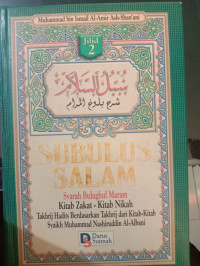 Muhammad bin Ismail Al-Amir Ash-Shan'ani
Jilid
2
سبل السلام
شرح بلوغ المرام
SUBULUS
SALAM
Syarah Bulughul Maram
Kitab Zakat - Kitab Nikah
Takhrij Hadits Berdasarkan Takhrij dari Kitab-Kitab
Syaikh Muhammad Nashiruddin Al-Albani
Darus
Sunnah